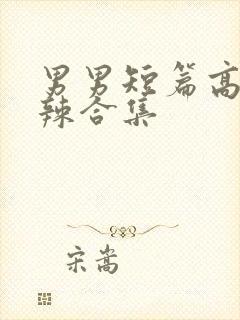 男男短篇高
辣合集
宋嵩